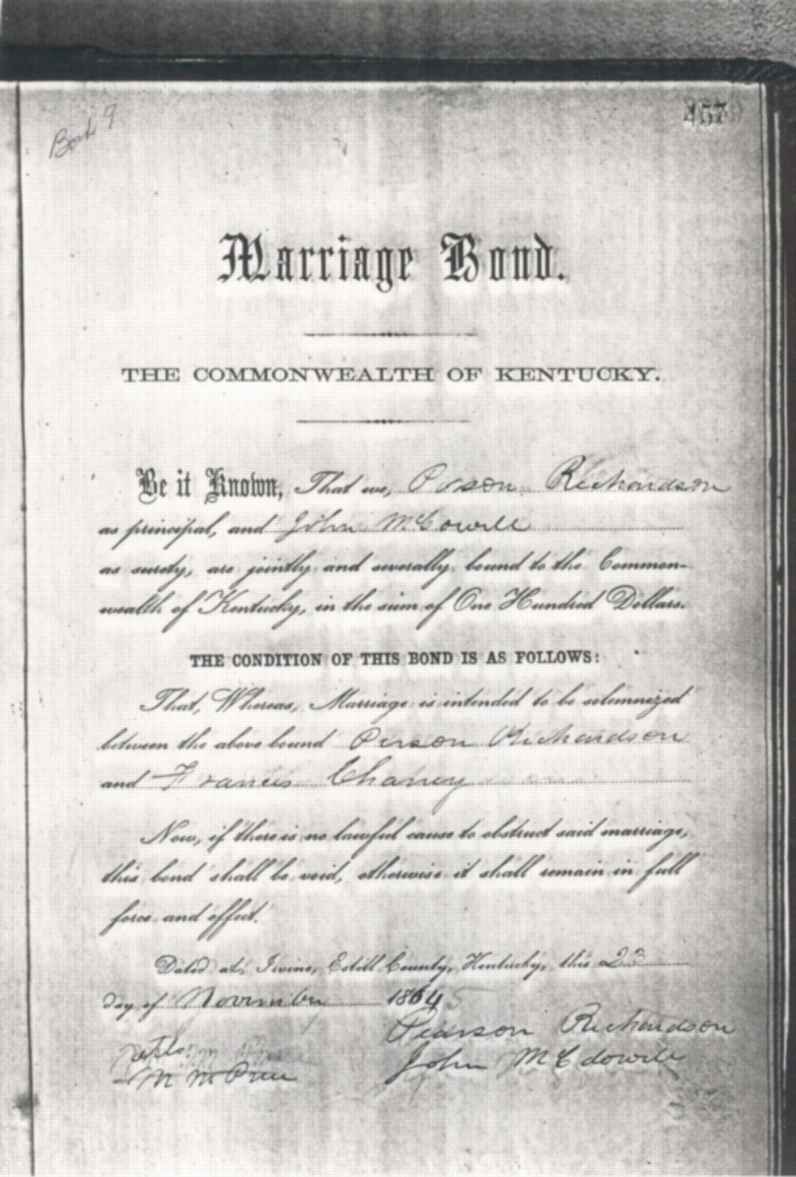 Book 9
457
Marriage Bond.
THE COMMONWEALTH OF KENTUCKY.
Be it Known, That we, Person Richardson
as principal, and John McDowell
as surety, are jointly and severally bound to the Common-
wealth of Kentucky, in the sum of One Hundred Dollars.
THE CONDITION OF THIS BOND IS AS FOLLOWS:
That, Whereas, Marriage is intended to be solemnized
between the above bound Person Richardson
and Francis Chaney
Now, if there is no lawful cause to obstruct said marriage,
this bond shall be void, otherwise it shall remain in full
force and effect.
Dated at Irvine, Estill County, Kentucky, this 23
day of November 1864
Pearson Richardson
John McDowell